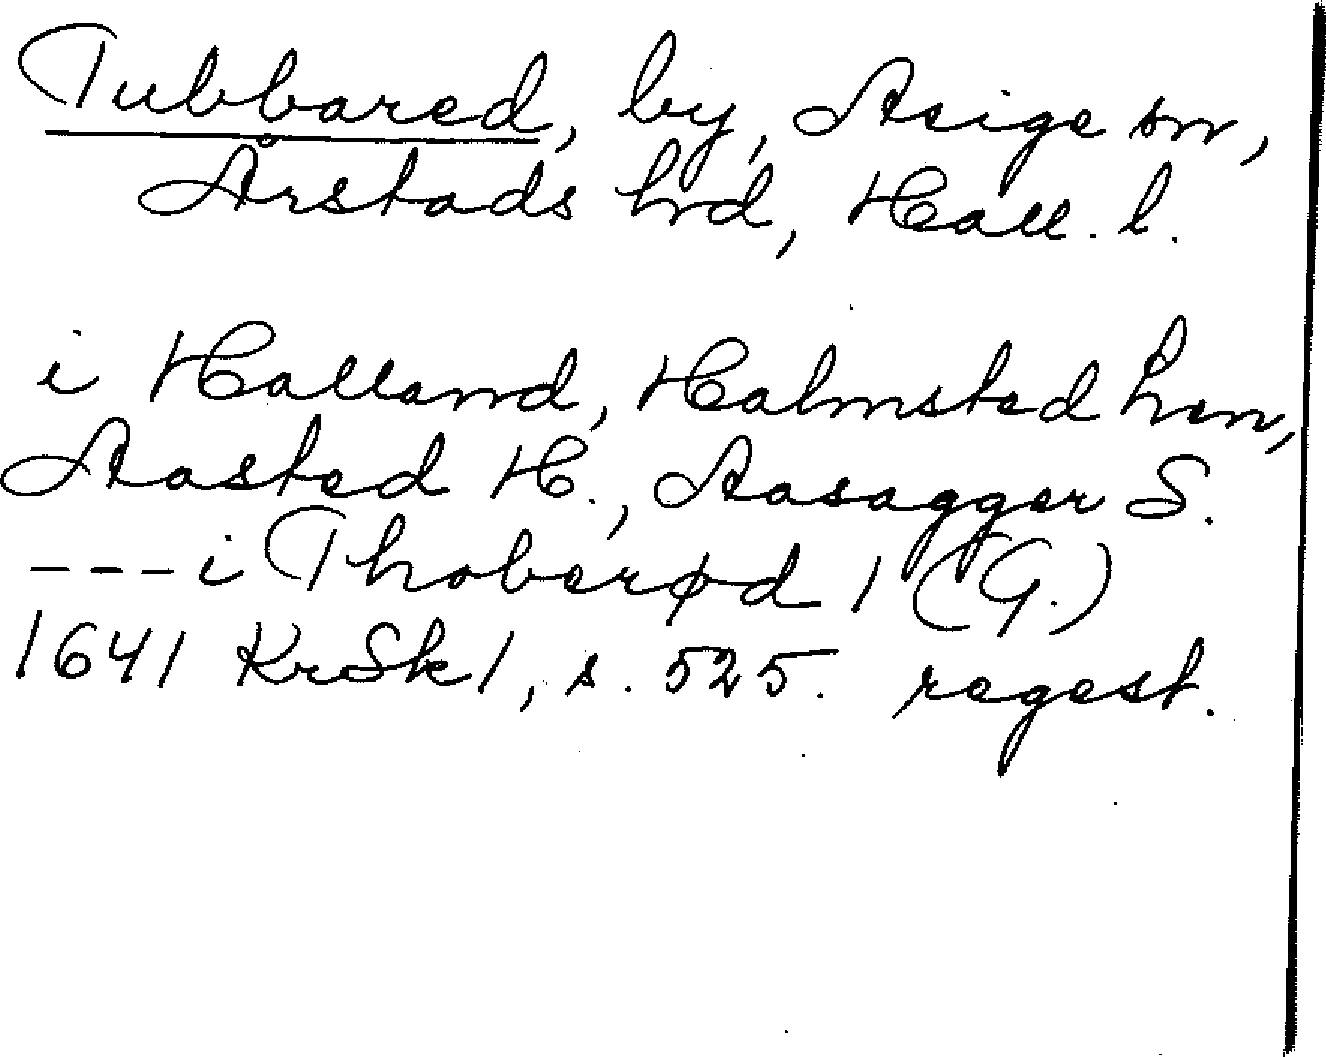 Tubbared, by, Asige sn,
Årstads hrd, Hall. l.
i Halland, Halmsted Len,
Aasted H., Aasagger S.
--- i Thoberød 1 (G.)
1641 KrSk 1, s. 525. regest.